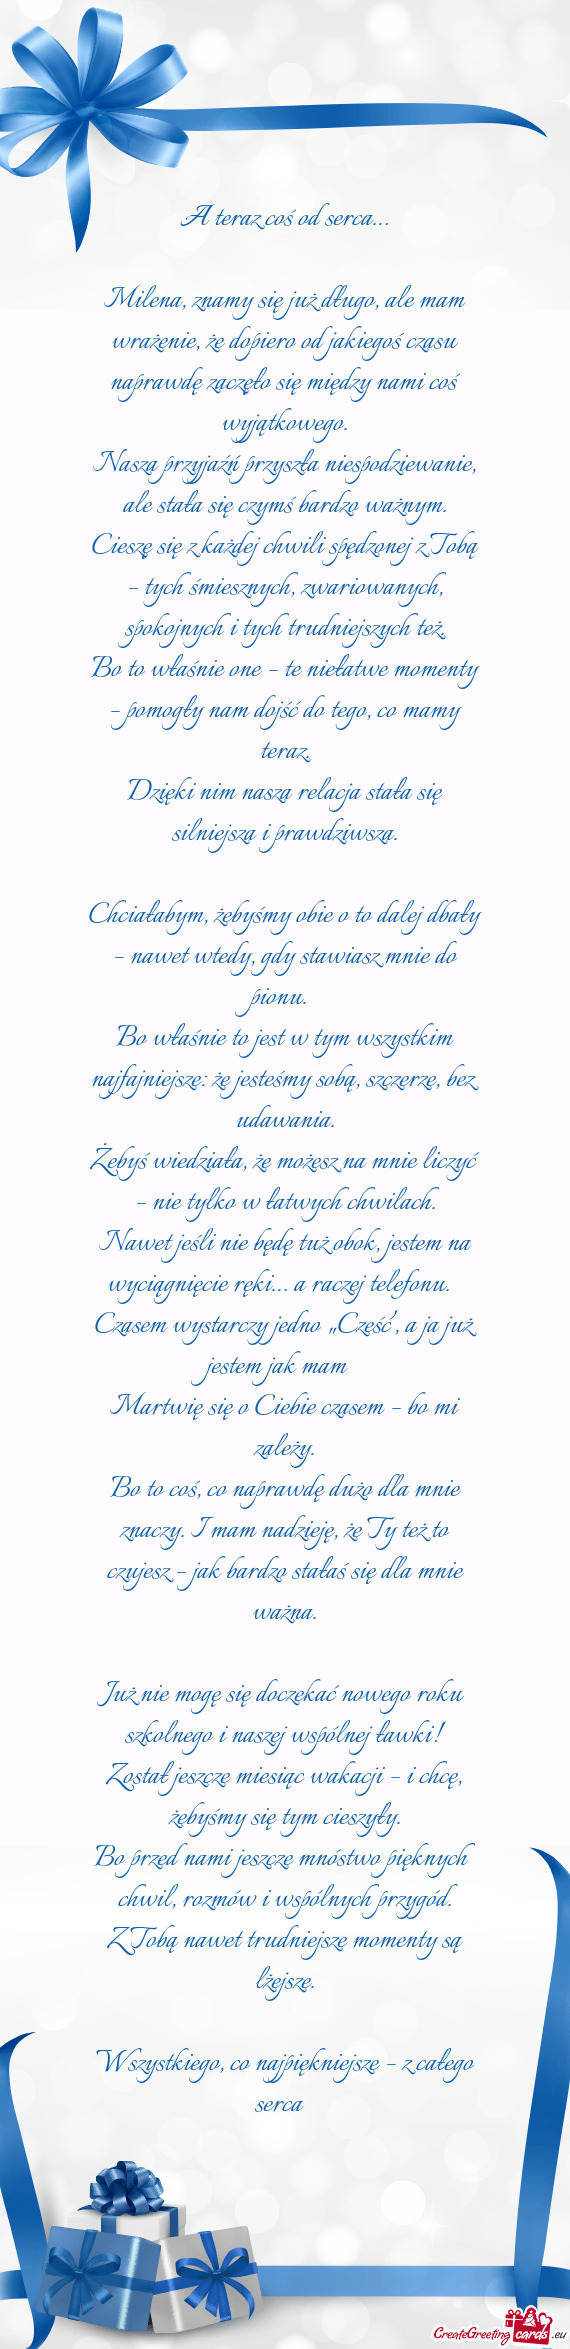 A teraz coś od serca...
Milena, znamy się już długo, ale mam
wrażenie, że dopiero od jakiegoś czasu
naprawdę zaczęło się między nami coś
wyjątkowego.
Nasza przyjaźń przyszła niespodziewanie,
ale stała się czymś bardzo ważnym.
Cieszę się z każdej chwili spędzonej z Tobą
– tych śmiesznych, zwariowanych,
spokojnych i tych trudniejszych też.
Bo to właśnie one – te niełatwe momenty
– pomogły nam dojść do tego, co mamy
teraz.
Dzięki nim nasza relacja stała się
silniejsza i prawdziwsza.
Chciałabym, żebyśmy obie o to dalej dbały
– nawet wtedy, gdy stawiasz mnie do
pionu.
Bo właśnie to jest w tym wszystkim
najfajniejsze: że jesteśmy sobą, szczerze, bez
udawania.
Żebyś wiedziała, że możesz na mnie liczyć
– nie tylko w łatwych chwilach.
Nawet jeśli nie będę tuż obok, jestem na
wyciągnięcie ręki... a raczej telefonu.
Czasem wystarczy jedno „Cześć", a ja już
jestem jak mam
Martwię się o Ciebie czasem – bo mi
zależy.
Bo to coś, co naprawdę dużo dla mnie
znaczy. I mam nadzieję, że Ty też to
czujesz – jak bardzo stałaś się dla mnie
ważna.
Już nie mogę się doczekać nowego roku
szkolnego i naszej wspólnej ławki!
Został jeszcze miesiąc wakacji – i chcę,
żebyśmy się tym cieszyły.
Bo przed nami jeszcze mnóstwo pięknych
chwil, rozmów i wspólnych przygód.
Z Tobą nawet trudniejsze momenty są
lżejsze.
Wszystkiego, co najpiękniejsze – z całego
serca
CreateGreeting cards .eu